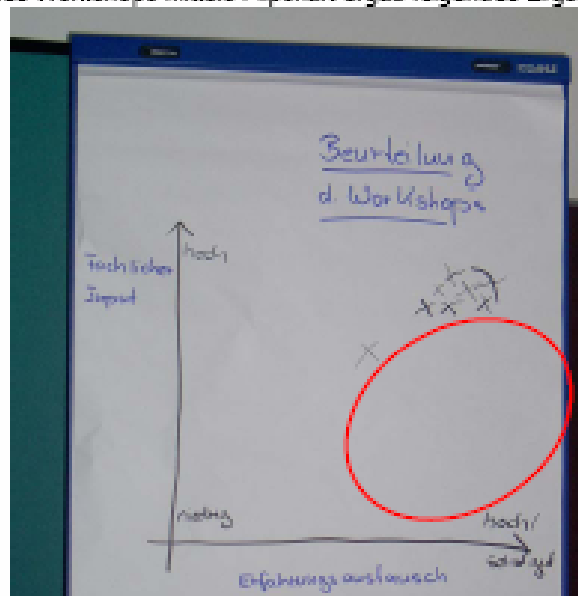 Beurteilung
d. Workshops
hoch
Fachlicher
Input
niedrig
hoch/
Erfahrungsaustausch